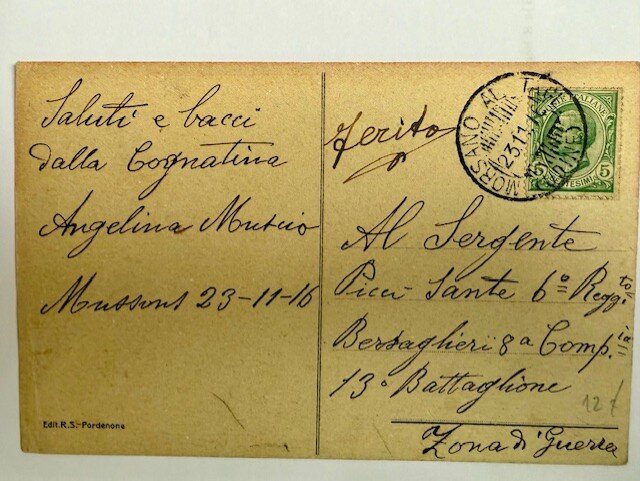 Saluti e bacci
dalla Cognatina
Angelina Muscio
Mussons 23-11-16
Edit. R. S. - Pordenone
ferito
MORSANO AL TAG
(UDINE)
23.11
POSTE ITALIANE
5 CENTESIMI 5
Al Sergente
Picci Sante 6º Reggto
Bersaglieri 8ª Comp.ia
13º Battaglione
Zona di Guerra
12 f